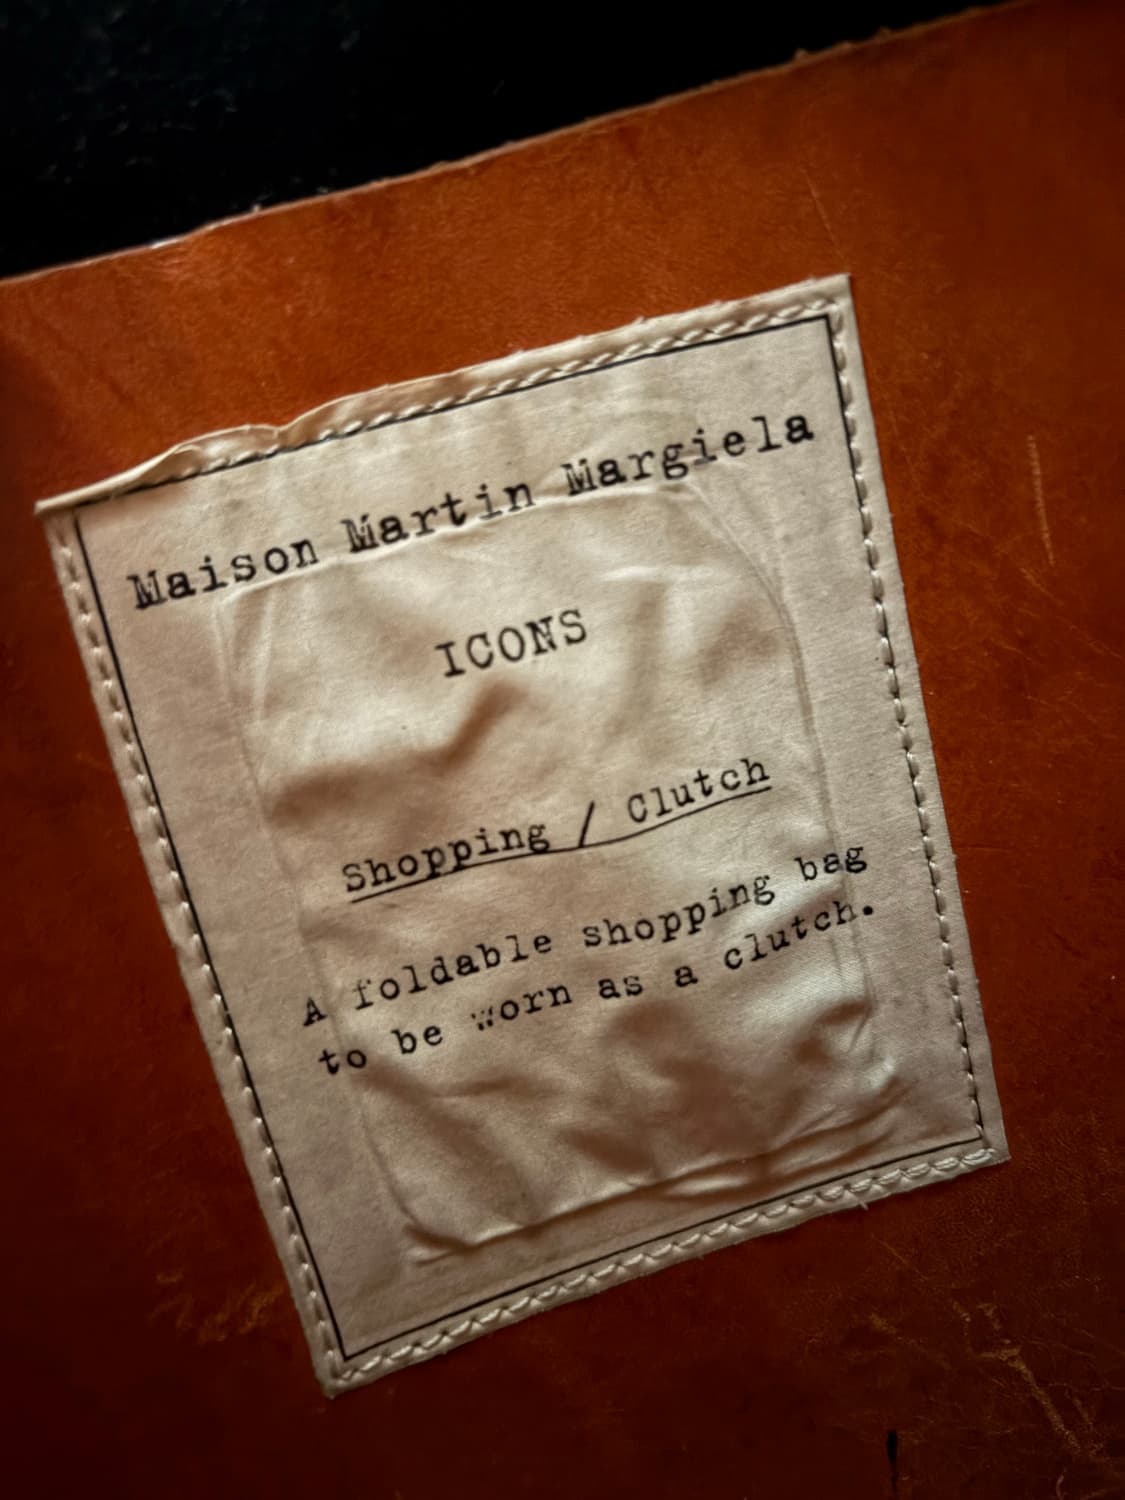 Maison Martin Margiela
ICONS
Shopping / Clutch
A foldable shopping bag
to be worn as a clutch.